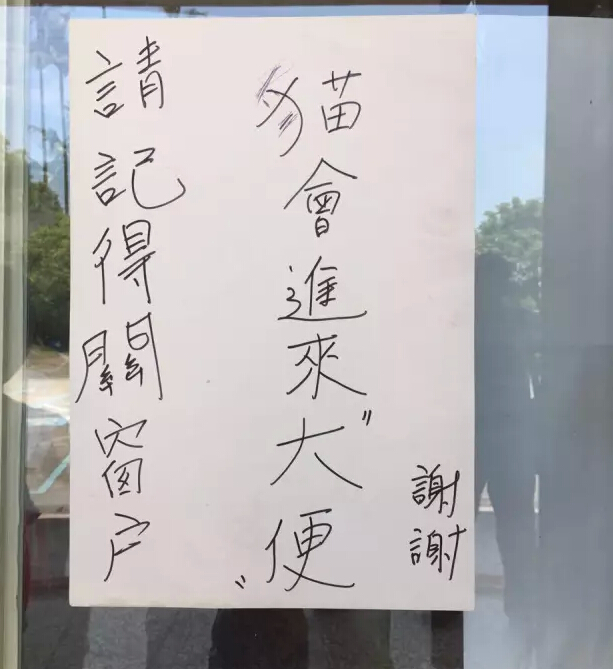 請記得關窗户
貓會進來"大便"
謝謝